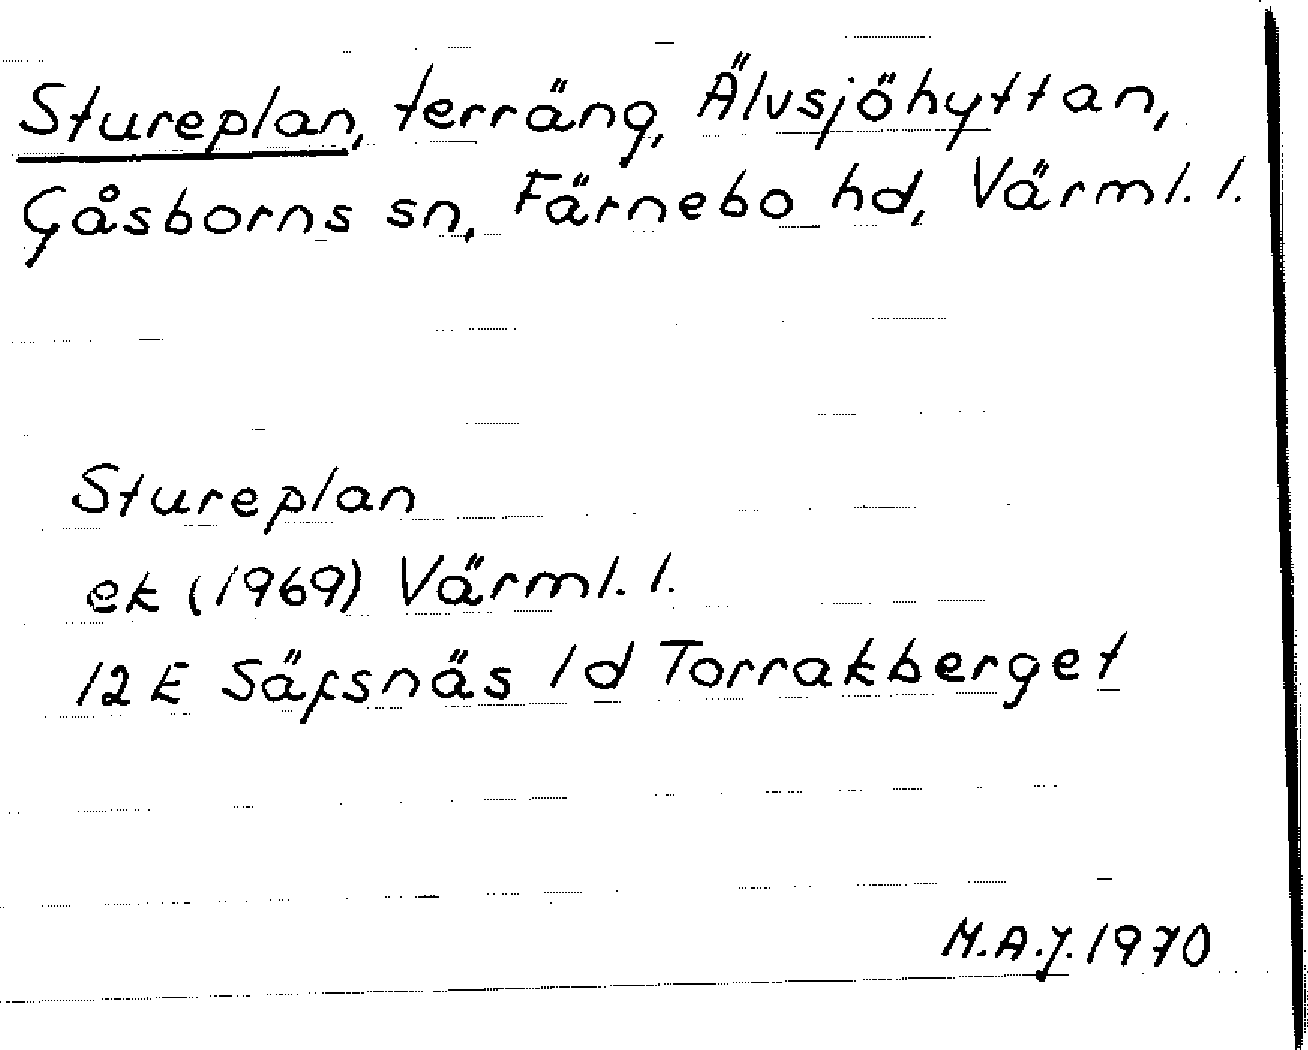 Stureplan, terräng, Älvsjöhyttan,
Gåsborns sn, Färnebo hd, Värml. l.
Stureplan
ek (1969) Värml. l.
12 E Säfsnäs 1 d Torrakberget
M.A.J. 1970